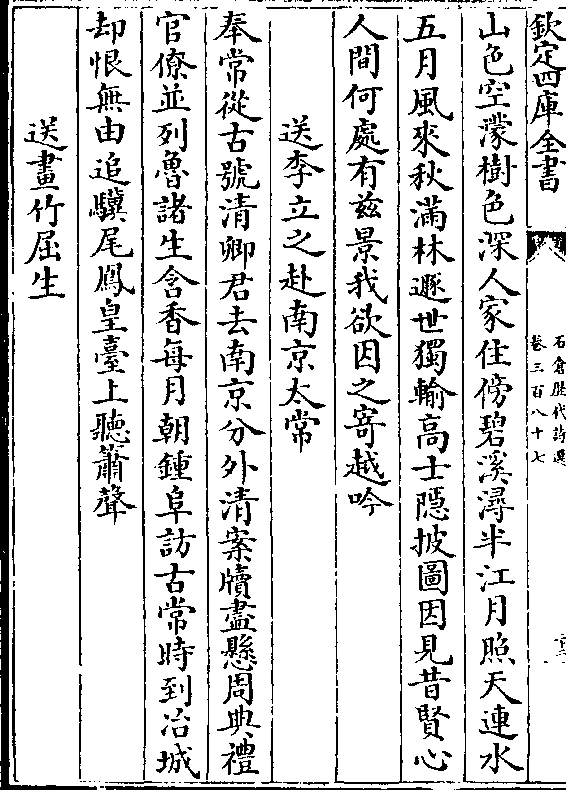 欽定四庫全書
石倉歷代詩選
卷三百八十七
山色空濛樹色深人家住傍碧溪潯半江月照天連水
五月風來秋滿林遯世獨輸高士隱披圖因見昔賢心
人間何處有茲景我欲因之寄越吟
送李立之赴南京太常
奉常從古號清卿君去南京分外清案牘盡懸周典禮
官僚並列魯諸生含香每月朝鍾阜訪古常時到冶城
却恨無由追驥尾鳳皇臺上聽簫聲
送畫竹屈生